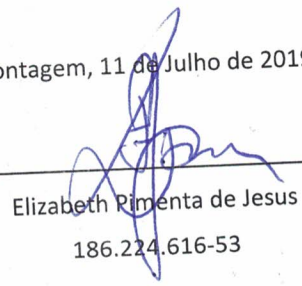 ontagem, 11 de Julho de 2019
Elizabeth Pimenta de Jesus
186.224.616-53